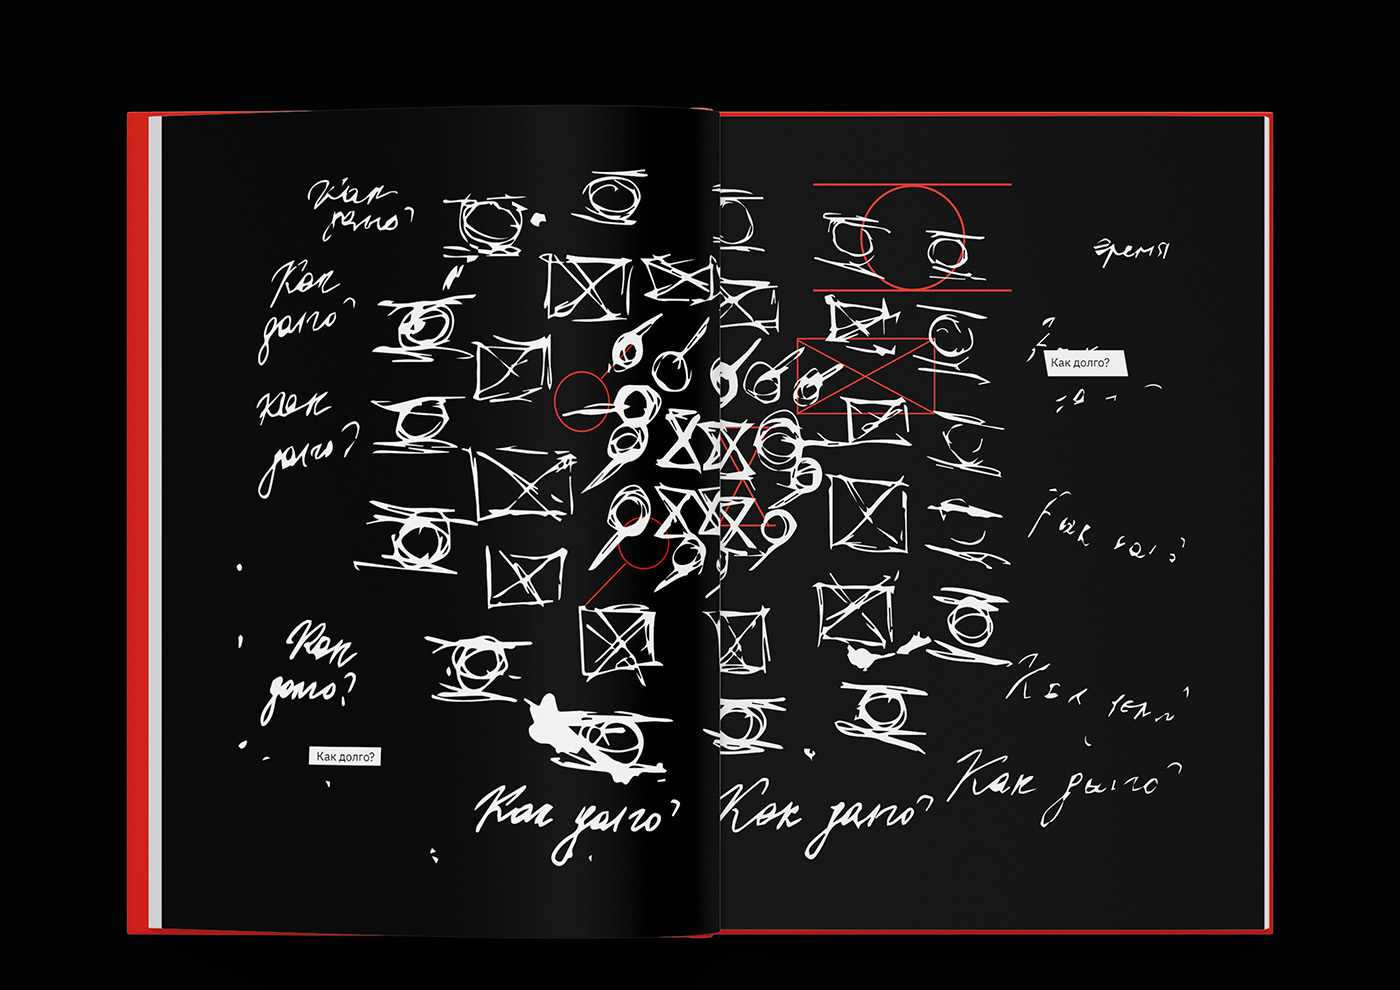 Как
долго?
Как
долго?
Как
долго?
Как
долго?
Как долго?
Как долго?
время
Как долго?
Как долго?
Как долго?